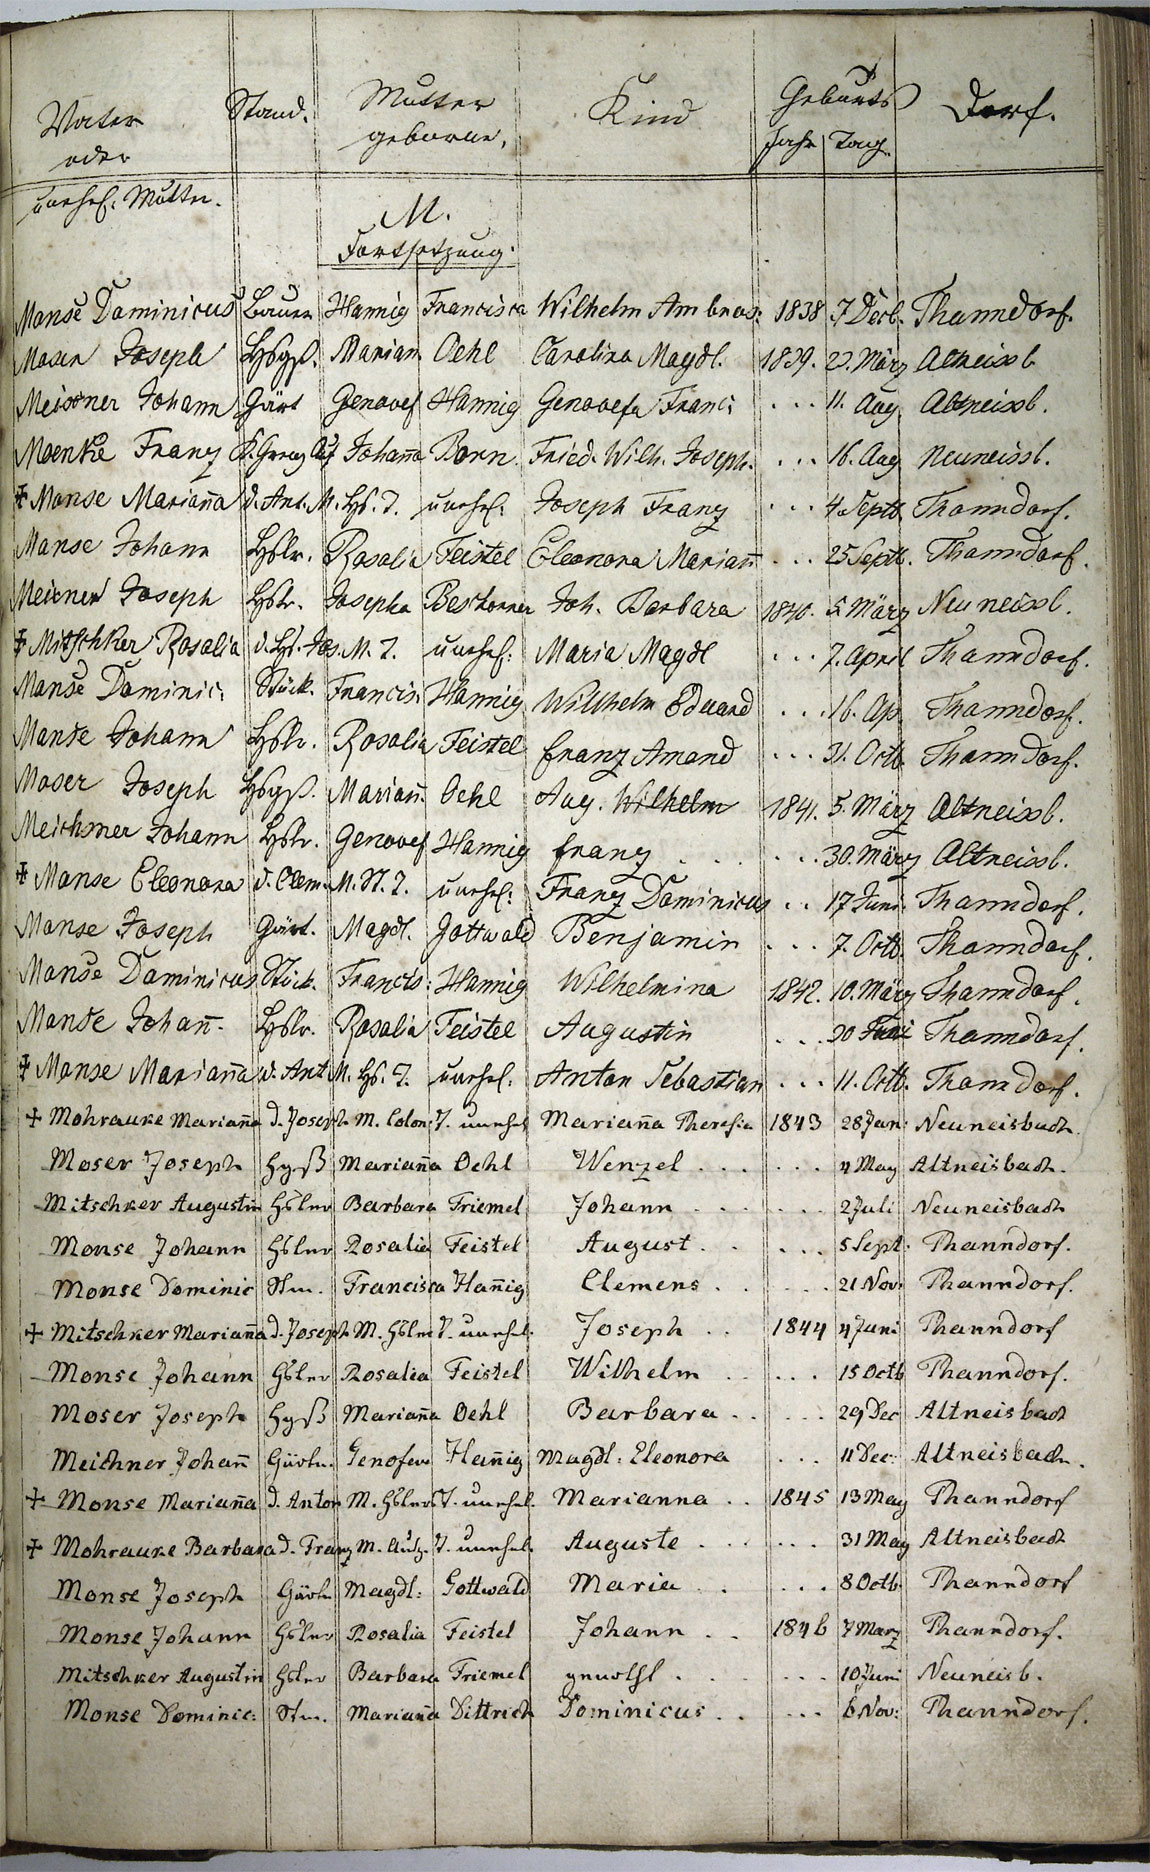 Vater Stand. Mutter Kind Geburts Dorf.
oder geborne, Jahr Tag.
unehel. Mutter.
M.
Fortsetzung.
Monse Dominicus Bauer Hannig Francisca Wilhelm Ambros: 1838 7 Decb. Thanndorf.
Moser Joseph Hsgß. Marian Oehl Carolina Magdl. 1839. 23. März Altneissb.
Meissner Johann Gärt Genovef Hannig Genovefa Franc: ... 11. Aug. Altneissb.
Moenke Franz Johaña Born Fried. Wilh. Joseph. ... 16. Aug Neuneissb.
+ Monse Mariaña d. Ant. M. Hs. T. unehel: Joseph Franz ... 4. Septb. Thanndorf.
Monse Johann Hslr. Rosalia Feistel Eleonora Mariañ ... 25 Septb. Thanndorf.
Meixner Joseph Hslr. Josepha Beschorner Joh. Barbara 1840. 5. März Neuneissb.
+ Mitschker Rosalia d. Hs. Jos. M. T. unehel: Maria Magdl ... 7. April Thanndorf.
Monse Dominic: Stück. Francis: Hannig Willhelm Eduard ... 16. Ap. Thanndorf.
Monse Johann Hslr. Rosalia Feistel Franz Amand ... 31. Octb. Thanndorf.
Moser Joseph Hsgß. Mariañ. Oehl Aug. Wilhelm 1841. 5. März Altneissb.
Meichsner Johann Hslr. Genovef Hannig Franz ... 30. März Altneissb.
+ Monse Eleonora d. Clem. M. St. T. unehel: Franz Dominicus .. 17 Juni. Thanndorf.
Monse Joseph Gärt. Magdl. Gottwald Benjamin ... 7. Octb. Thanndorf.
Monse Dominicus Stück. Francis: Hannig Wilhelmina 1842. 10. März Thanndorf.
Monse Johañ. Hslr. Rosalia Feistel Augustin ... 20 Juni Thanndorf.
+ Monse Mariaña d. Ant. M. Hs. T. unehel: Anton Sebastian ... 11. Octb. Thanndorf.
+ Mohrauke Mariaña d. Joseph M. Colon: T. unehel Mariaña Theresia 1843 28 Jan: Neuneisbach.
Moser Joseph Hgß Mariaña Oehl Wenzel ... ... 4 May Altneisbach.
Mitschker Augustin Hslner Barbara Friemel Johann ... ... 2 Juli Neuneisbach
Monse Johann Hslner Rosalia Feistel August ... ... 5 Sept: Thanndorf.
Monse Dominic Stm. Francisca Hañig Clemens ... ... 21 Nov: Thanndorf.
+ Mitschker Mariaña d. Joseph M. Hslner T. unehel. Joseph .. 1844 4 Juni Thanndorf
Monse Johann Hslner Rosalia Feistel Wilhelm ... ... 15 Octb Thanndorf.
Moser Joseph Hgß Mariaña Oehl Barbara ... ... 29 Dec Altneisbach
Meichner Johañ Gärtn. Genofeva Hañig Magdl: Eleonora ... 11 Dec: Altneisbach.
+ Monse Mariaña d. Anton M. Hslners T. unehel. Marianna .. 1845 13 May Thanndorf
+ Mohrauke Barbara d. Franz M. Ausz. T. unehel. Auguste ... ... 31 May Altneisbach
Monse Joseph Gärtn Magdl: Gottwald Maria .. ... 8 Octb. Thanndorf
Monse Johann Hslner Rosalia Feistel Johann .. 1846 7 März Thanndorf.
Mitschker Augustin Hslner Barbara Friemel . ... 10 Juni Neuneisb.
Monse Dominic: Stm. Mariaña Dittrich Dominicus .. ... 6 Nov: Thanndorf.